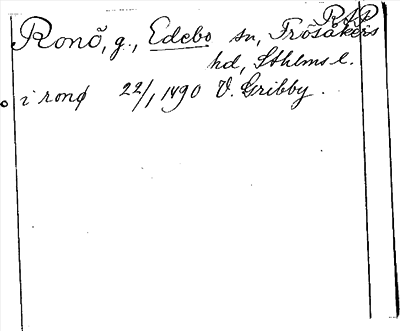 RAP
Ronö, g., Edebo sn, Frösåkers
hd, Sthlms l.
i ronø 22/1 1490 V. Gribby.